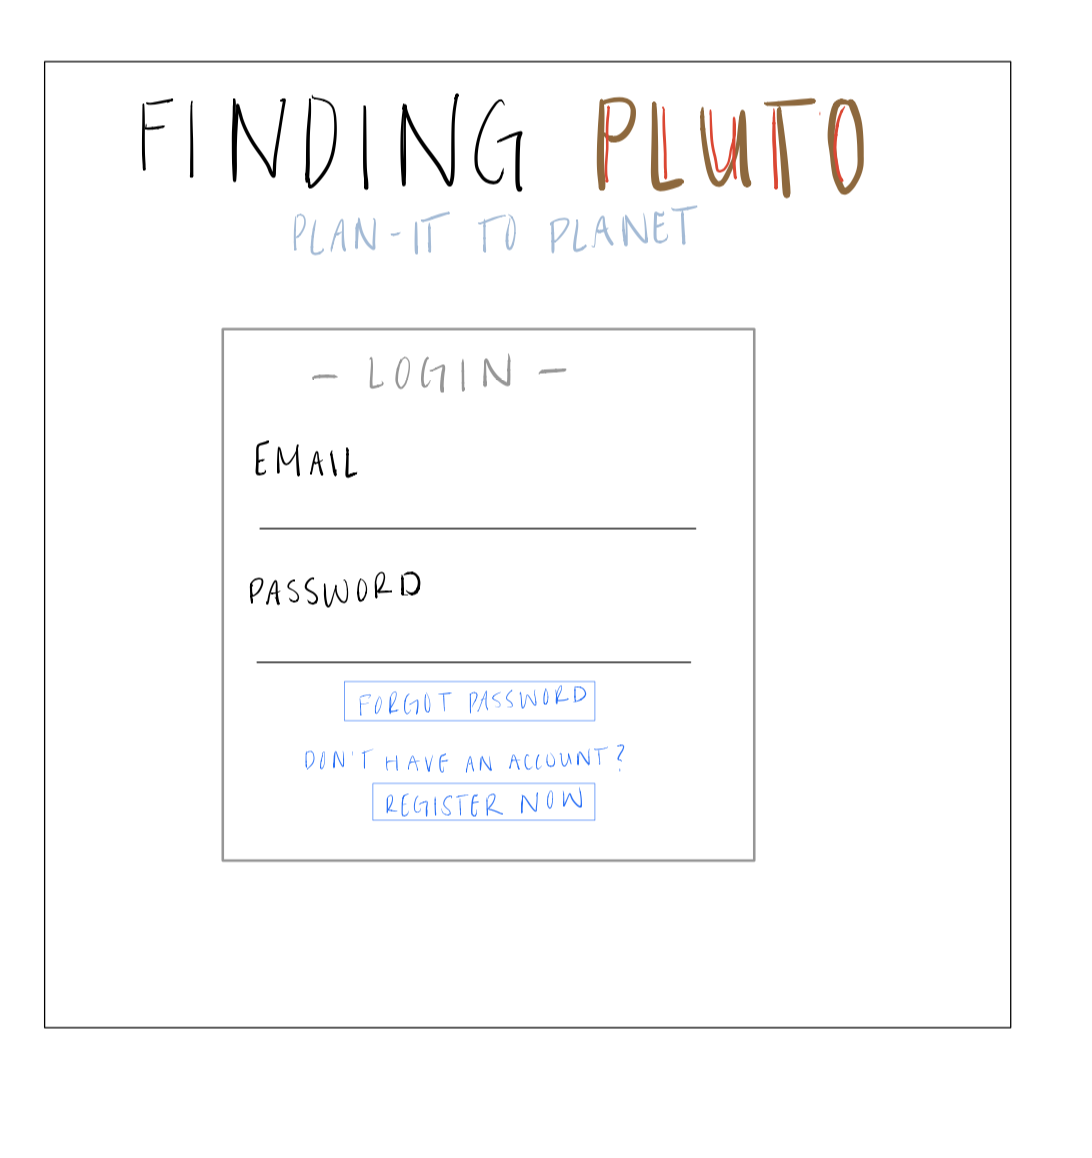 FINDING PLUTO
PLAN-IT TO PLANET
- LOGIN -
EMAIL
PASSWORD
FORGOT PASSWORD
DON'T HAVE AN ACCOUNT?
REGISTER NOW